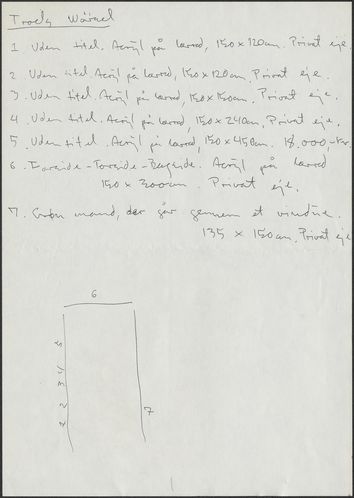 Troels Wörsel
1 Uden titel. Acryl på lærred, 150 x 120 cm. Privat eje.
2 Uden titel. Acryl på lærred, 150 x 120 cm. Privat eje.
3. Uden titel. Acryl på lærred, 150 x 150 cm. Privat eje.
4. Uden titel. Acryl på lærred, 150 x 240 cm. Privat eje.
5. Uden titel. Acryl på lærred, 150 x 450 cm. 18.000,- kr.
6. Forside - Forside - Bagside. Acryl på lærred
150 x 300 cm. Privat eje.
7. Grøn mand, der går gennem et vindue.
135 x 150 cm. Privat eje
6
5
4
3
2
1
7